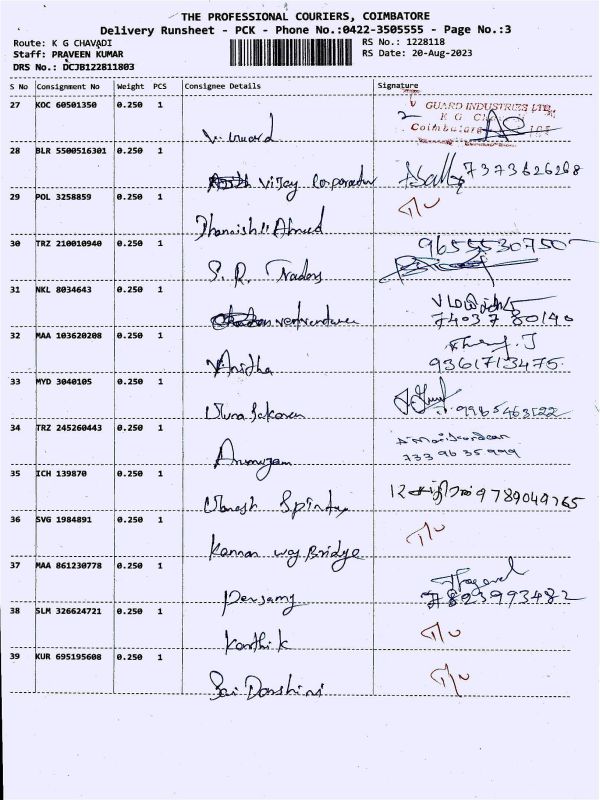 THE PROFESSIONAL COURIERS, COIMBATORE
Delivery Runsheet - PCK - Phone No.:0422-3505555 - Page No.:3
Route: K G CHAVADI
RS No.: 1228118
Staff: PRAVEEN KUMAR
RS Date: 20-Aug-2023
DRS No.: DCJB122811803
S No Consignment No Weight PCS Consignee Details Signature
27 KOC 60501350 0.250 1
GUARD INDUSTRIES LTD,
K G
Coimbatore
V. Guard
28 BLR 5500516301 0.250 1
Vijay Corporation 7373626268
29 POL 3258859 0.250 1
Ahmed
30 TRZ 210010940 0.250 1
S. R. Traders
31 NKL 8034643 0.250 1
32 MAA 103620208 0.250 1
Anitha 9361713475
33 MYD 3040105 0.250 1
34 TRZ 245260443 0.250 1
Arumugam 733 96 35 999
35 ICH 139870 0.250 1
9789049765
36 SVG 1984891 0.250 1
Kannan way Bridge
37 MAA 861230778 0.250 1
7823993482
38 SLM 326624721 0.250 1
Karthik
39 KUR 695195608 0.250 1
Sai Darshini